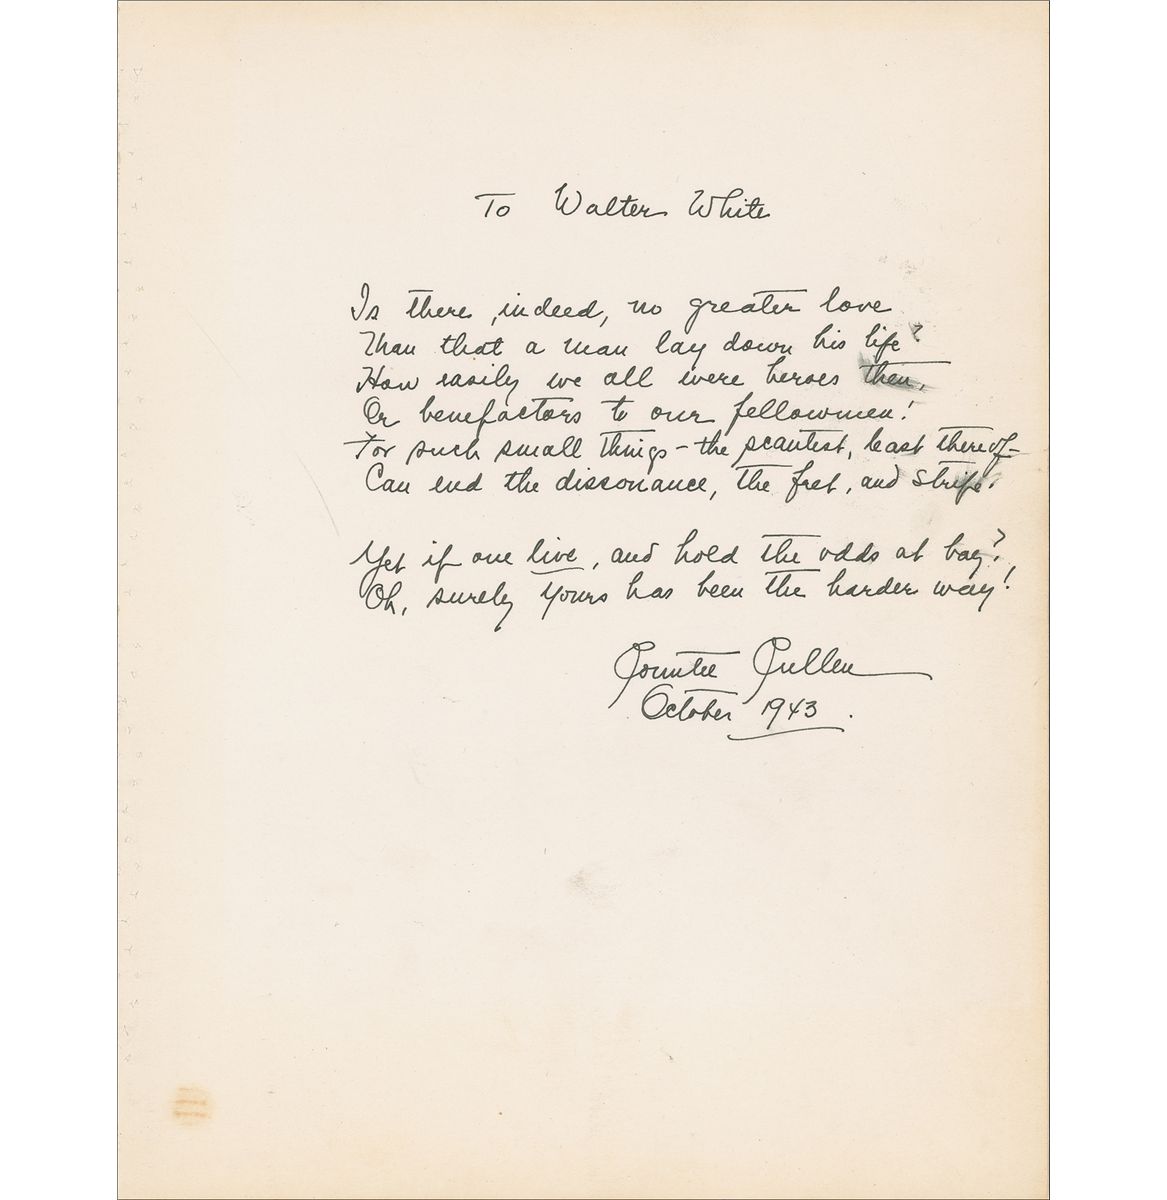 To Walter White
Is there, indeed, no greater love
Than that a man lay down his life?
How easily we all were heroes then,
Or benefactors to our fellowmen!
For such small things – the scantest, least thereof –
Can end the dissonance, the fret, and strife.
Yet if one live, and hold the odds at bay?
Oh, surely yours has been the harder way!
Countee Cullen
October 1943.